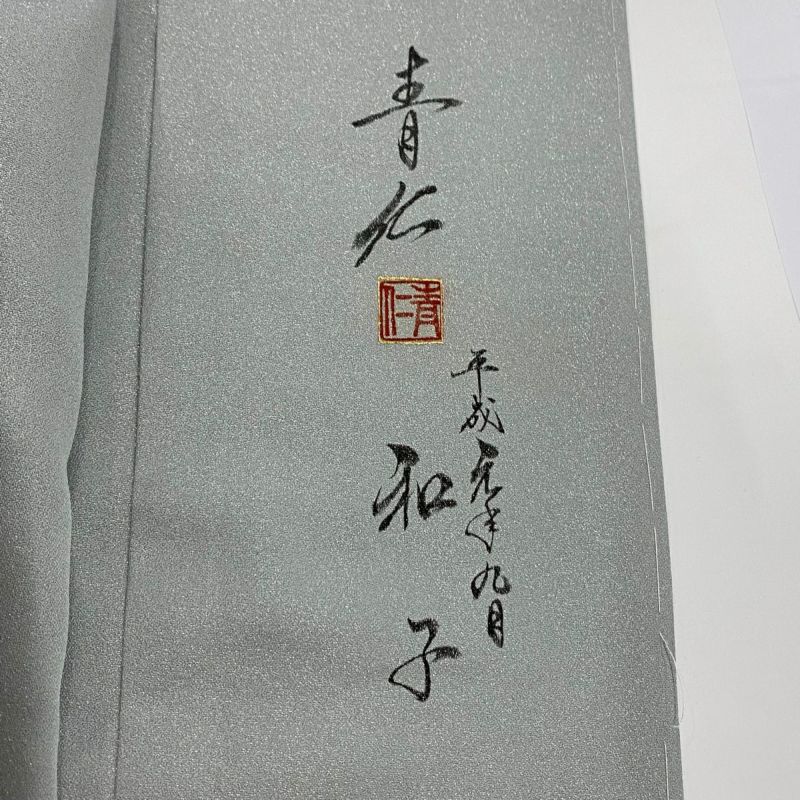 青仁
青仁
平成元年九月
和子